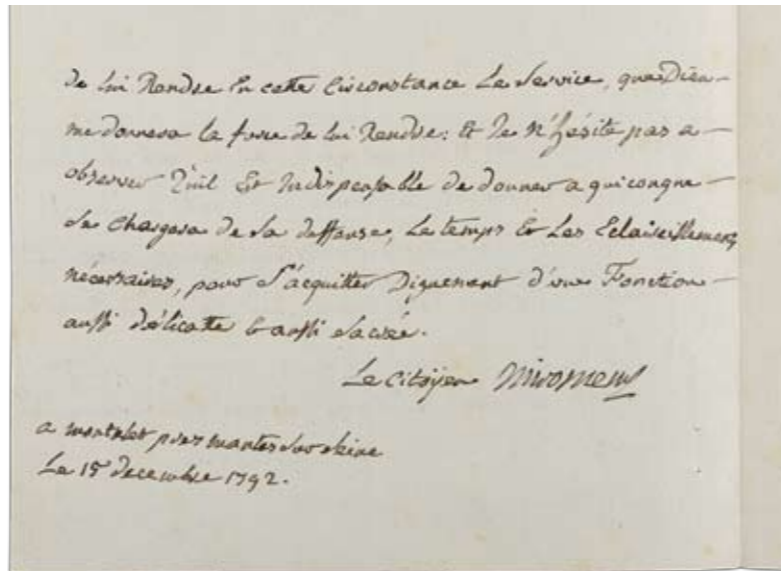 de lui Rendre En cette Circonstance Le Service, que Dieu
me donnera la force de lui Rendre: Et Je N'hésite pas a
observer Qu'il Est Indispensable de donner a quiconque
Se Chargera de Sa deffense, Le temps Et Les Eclaircissemens
nécessaires, pour S'acquitter Dignement d'une Fonction
aussi délicatte & aussi Sacrée.
Le Citoyen
a montalet près mantes Sur Seine
Le 15 decembre 1792.